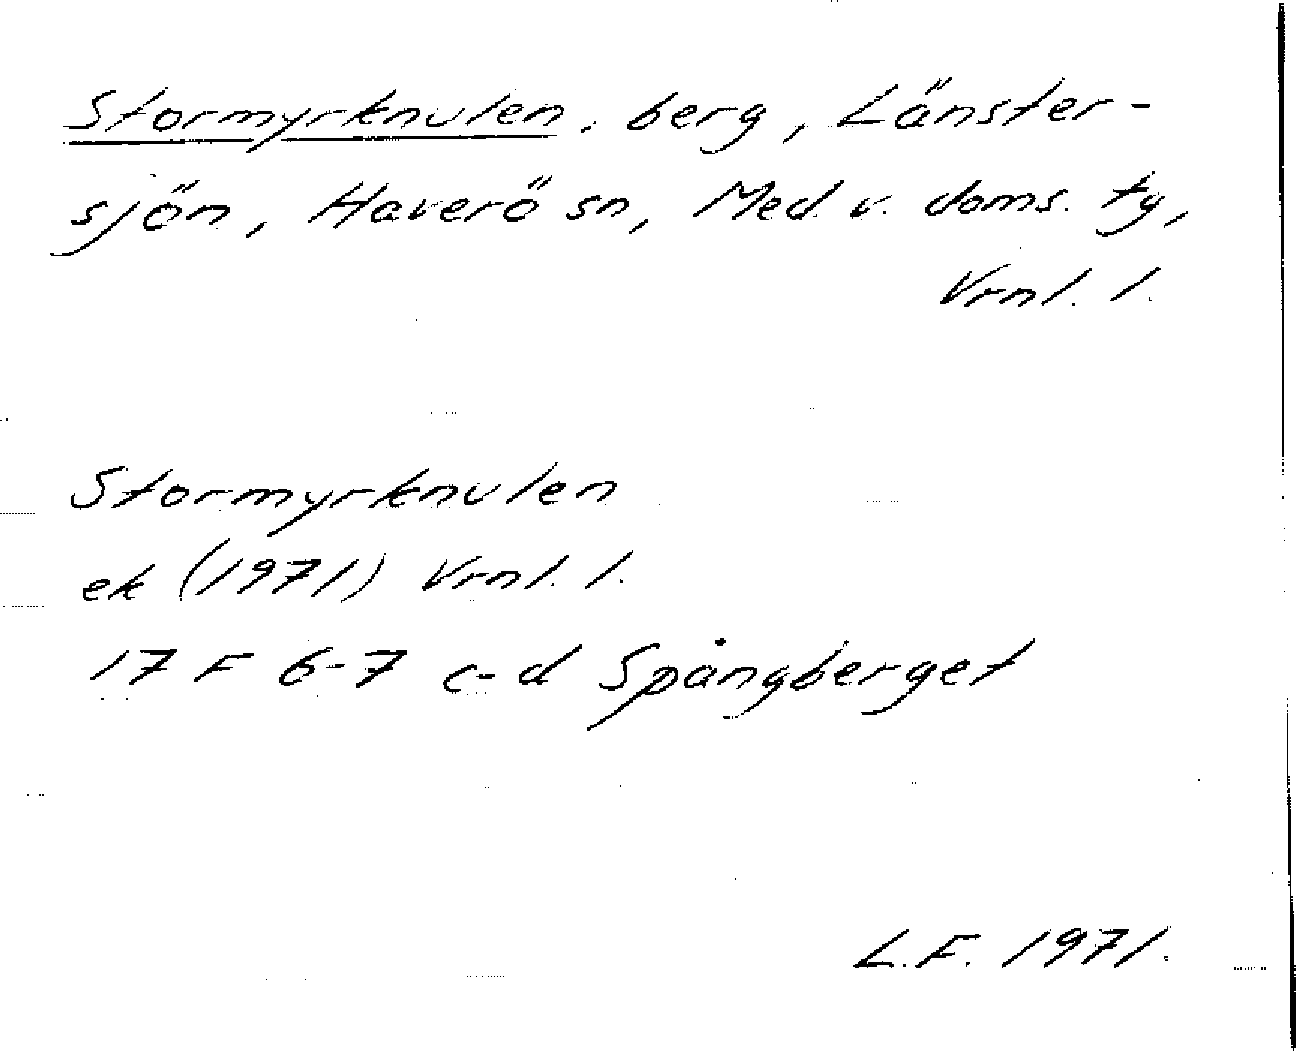 Stormyrknulen, berg, Länster-
sjön, Haverö sn, Med. v. doms. tg,
Vrnl. l.
Stormyrknulen
ek (1971) Vrnl. l.
17 F 6-7 c-d Spångberget
L.F. 1971.